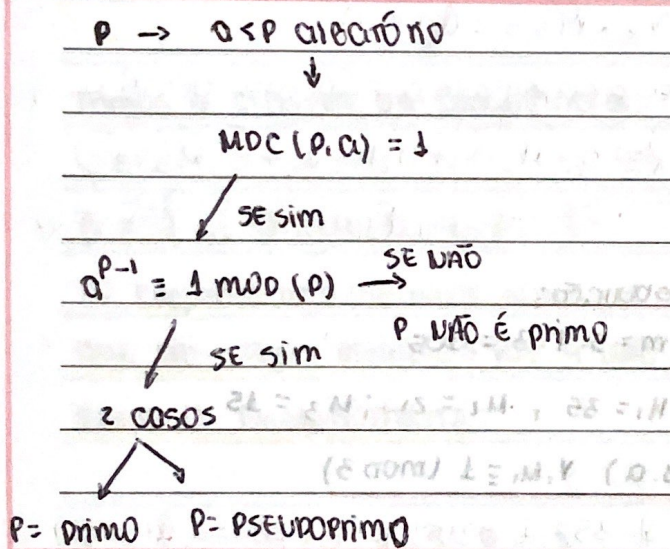 P → a<P aleatório
↓
MDC (P, a) = 1
SE sim
a^{P-1} ≡ 1 MOD (P) → SE NÃO
P NÃO É primo
SE sim
2 casos
P = primo P = PSEUDOPrimo